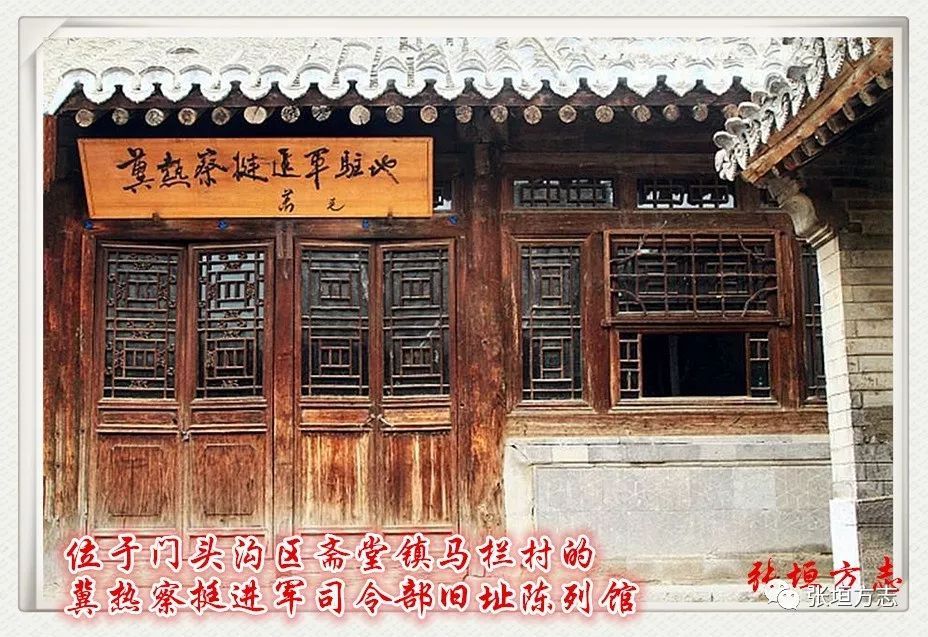 冀热察挺進军駐地
萧克
位于门头沟区斋堂镇马栏村的
冀热察挺进军司令部旧址陈列馆
张垣方志
张垣方志